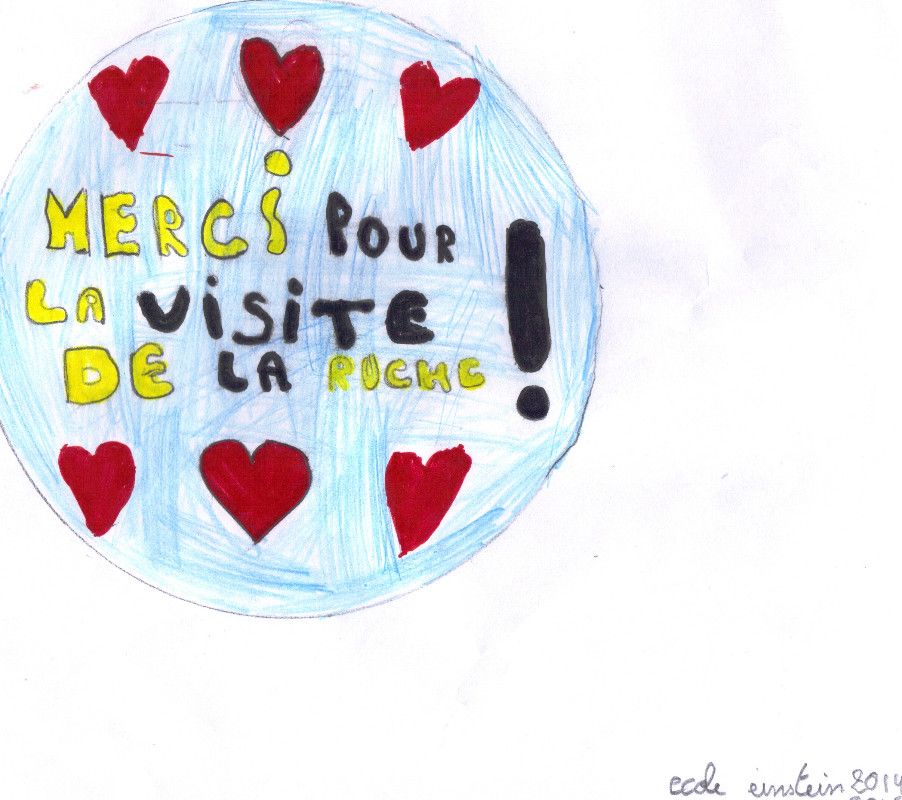 MERCi POUR
LA ViSiTE !
DE LA RUCHE
ecole einstein 2014